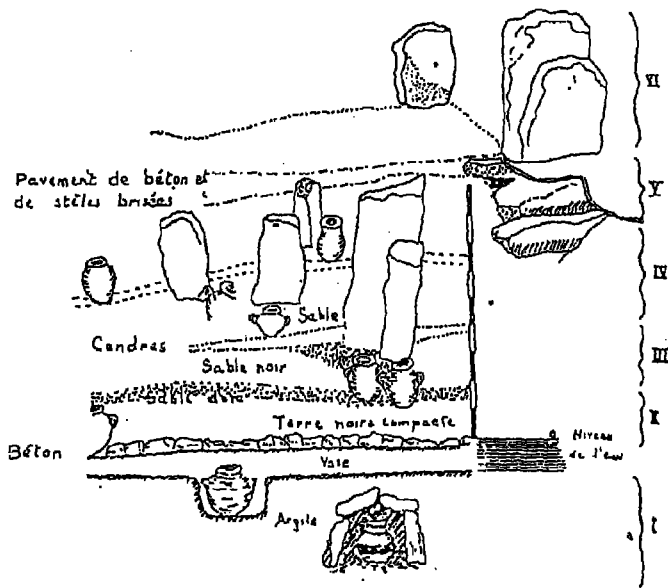 VI
Pavement de béton et
de stèles brisées
V
IV
Sable
Cendres
III
Sable noir
Sable dore
II
Terre noire compacte
Béton
Niveau
de l'eau
Vase
Argile
I